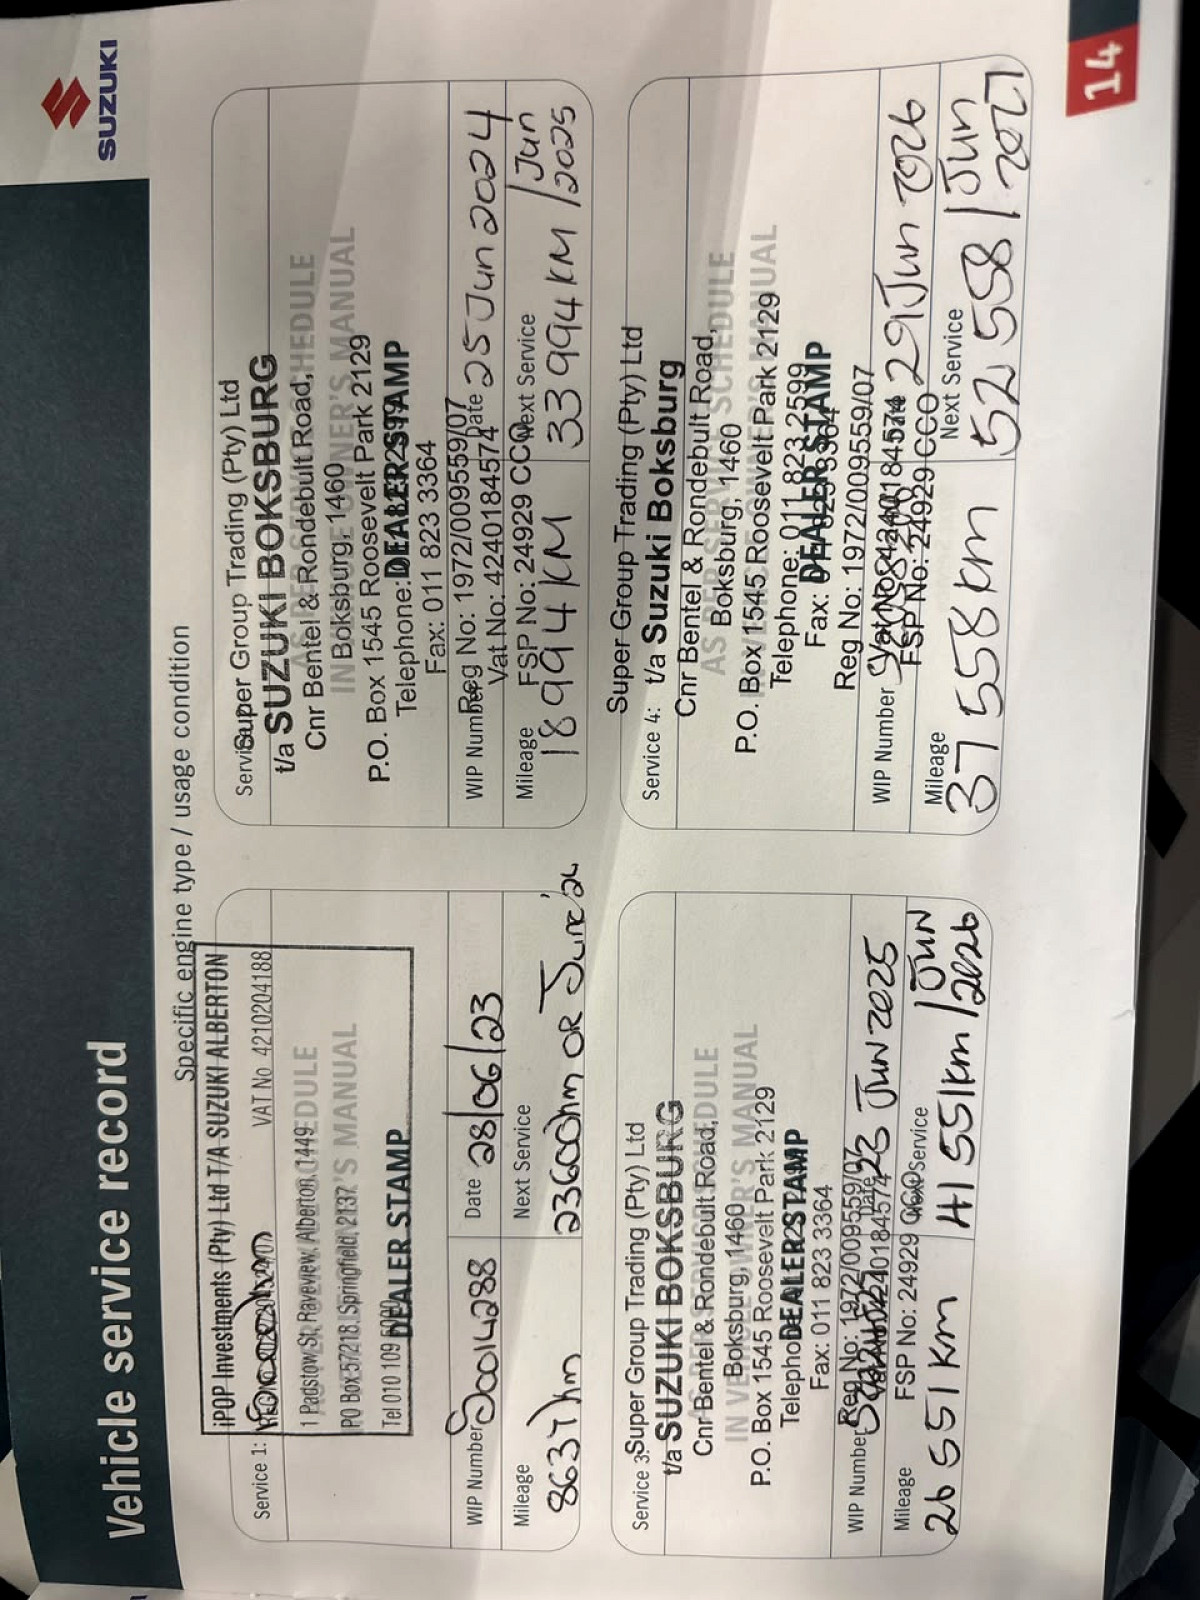 Vehicle service record
SUZUKI
Specific engine type / usage condition
Service 1:
IPOP Investments (Pty) Ltd T/A SUZUKI ALBERTON
VAT No 4210204188
1 Padstow St, Raveview, Alberton, 1449
PO Box 57218, Springfield, 2137
Tel 010 109
DEALER STAMP
WIP Number S0014288
Date 28/06/23
Mileage
8637km
Next Service
23600km OR June '24
Super Group Trading (Pty) Ltd
t/a SUZUKI BOKSBURG
Cnr Bentel & Rondebult Road,
Boksburg, 1460
P.O. Box 1545 Roosevelt Park 2129
Telephone:
DEALER STAMP
Fax: 011 823 3364
Reg No: 1972/009559/07
WIP Number
Vat No: 4240184574
Date 25 Jun 2024
FSP No: 24929 CCO
Mileage
18994KM
Next Service
33994KM / Jun 2025
Service 3:
Super Group Trading (Pty) Ltd
t/a SUZUKI BOKSBURG
Cnr Bentel & Rondebult Road,
Boksburg, 1460
IN VEHICLE OWNER'S MANUAL
P.O. Box 1545 Roosevelt Park 2129
DEALER STAMP
Fax: 011 823 3364
Reg No: 1972/009559/07
WIP Number
Date 23 JUN 2025
FSP No: 24929 CCO
Mileage
26551km
Next Service
41551km / JUN 2026
Super Group Trading (Pty) Ltd
Service 4:
t/a Suzuki Boksburg
Cnr Bentel & Rondebult Road,
AS PER SERVICE SCHEDULE
Boksburg, 1460
P.O. Box 1545 Roosevelt Park 2129
Telephone: 011 823 2599
DEALER STAMP
Fax: 011 823 3364
Reg No: 1972/009559/07
WIP Number
Date 29 Jun 2026
FSP No: 24929 CCO
Mileage
37558km
Next Service
52558 / Jun 2027
14